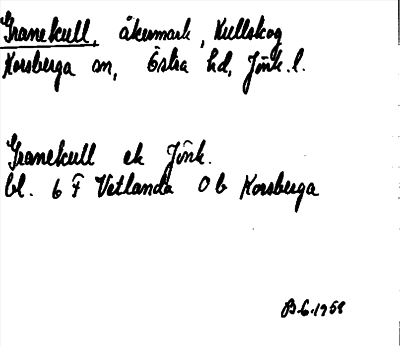 Granekull, åkermark, Kullskog
Korsberga sn, Östra hd, Jönk. l.
Granekull ek Jönk.
bl. 6 F Vetlanda 0 b Korsberga
B.G. 1958